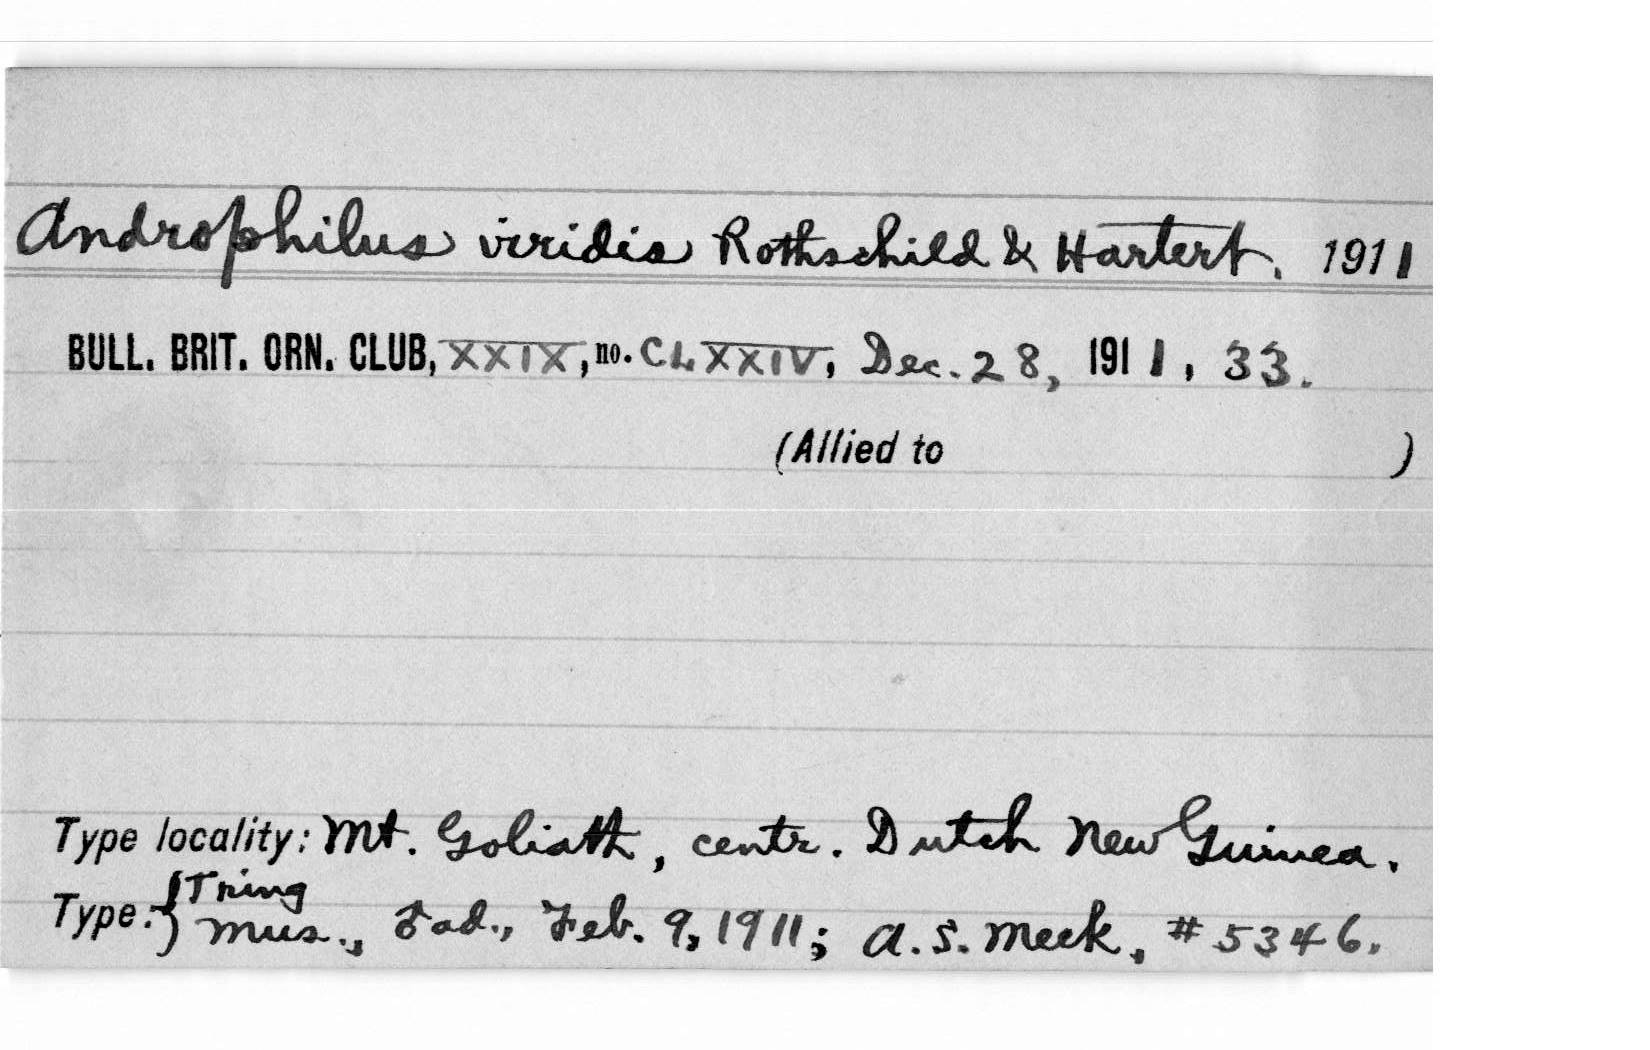 Androphilus viridis Rothschild & Hartert. 1911
BULL. BRIT. ORN. CLUB, XXIX, no. CLXXIV, Dec. 28, 1911, 33.
(Allied to )
Type locality: Mt. Goliath, centr. Dutch New Guinea.
Type: { Tring Mus., ♂ad., Feb. 9, 1911; A. S. Meek, # 5346.